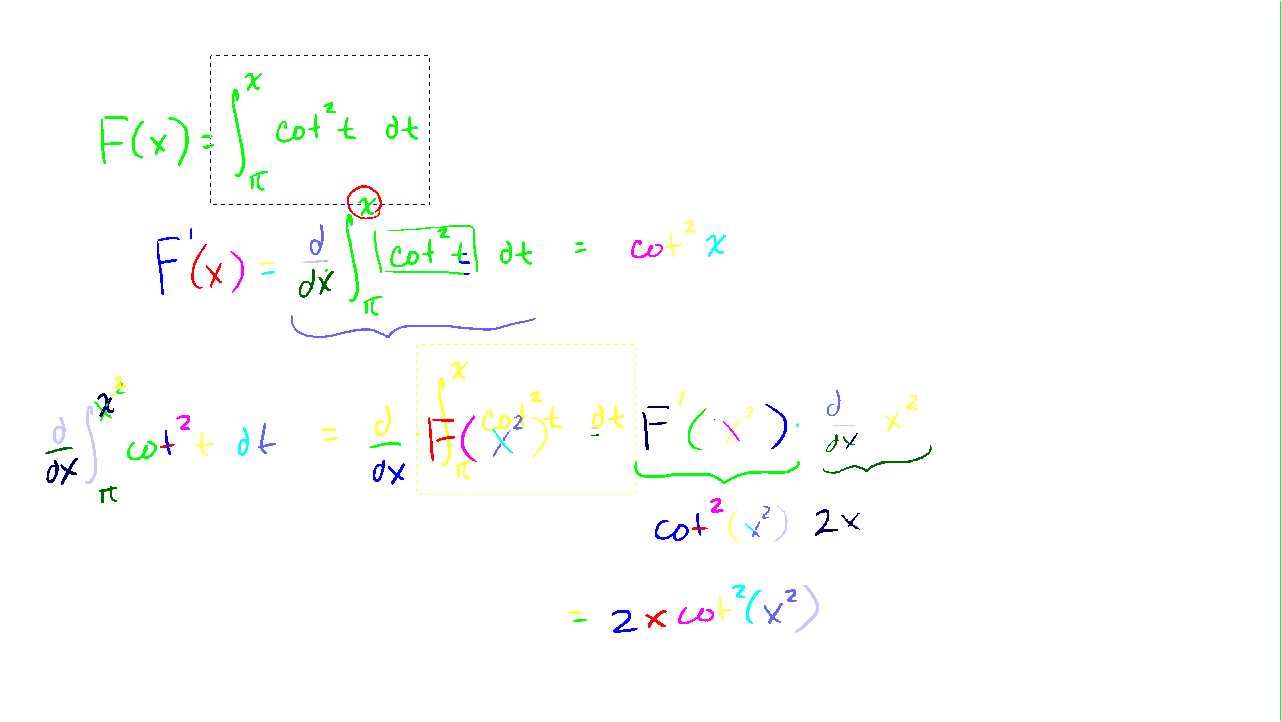 F(x) = ∫_π^x cot² t dt
F'(x) = d/dx ∫_π^x cot² t dt = cot² x
d/dx ∫_π^{x²} cot² t dt = d/dx F(x²) ∫_π^x cot² t dt = F'(x²) · d/dx x²
cot² (x²) 2x
= 2x cot² (x²)